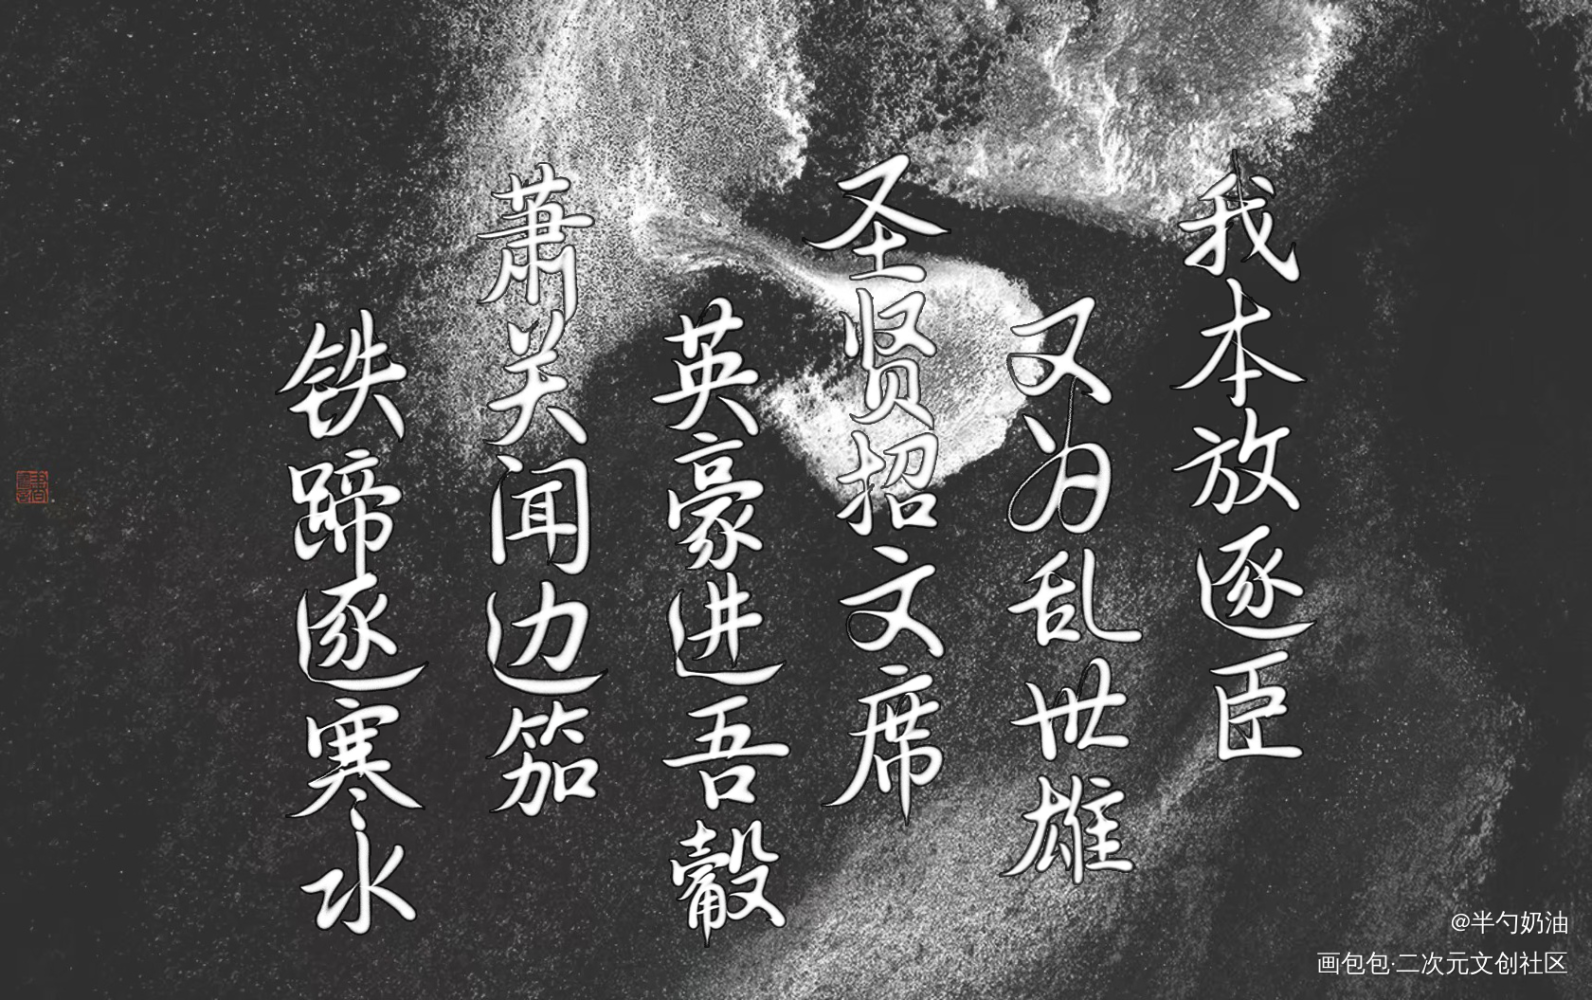 我本放逐臣
又为乱世雄
圣贤招文席
英豪进吾彀
萧关闻边笳
铁蹄逐寒水
@半勺奶油
画包包·二次元文创社区